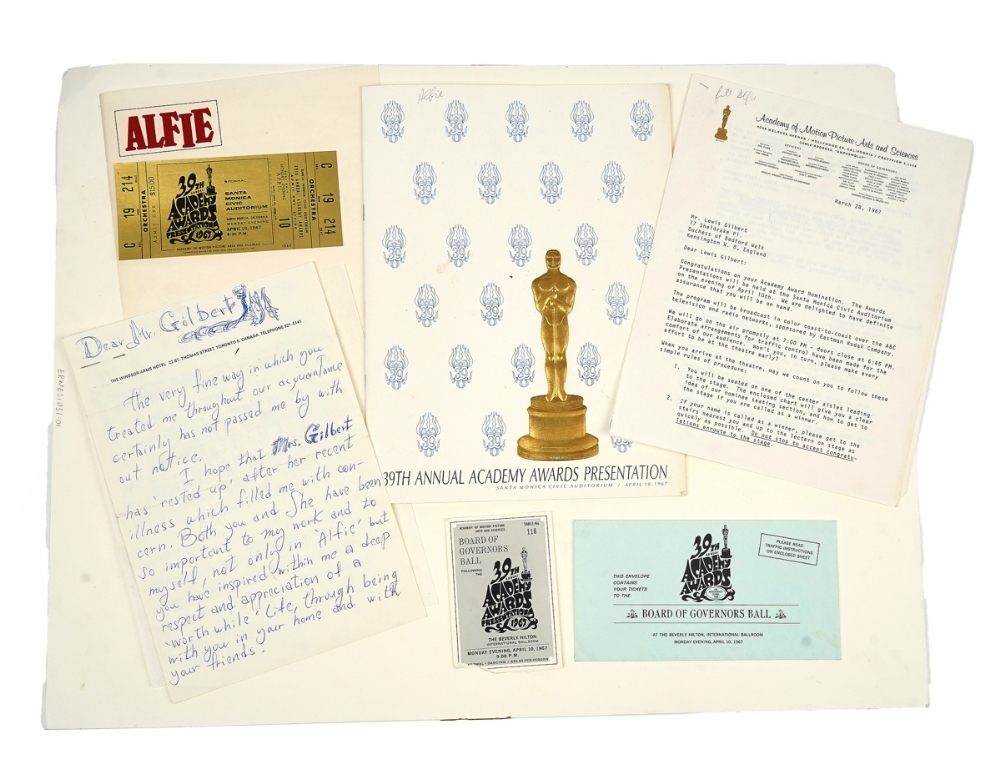 ALFIE
C 19 214
ORCHESTRA
ADMIT ONE $15.00
39TH
ANNUAL
ACADEMY
AWARDS
PRESENTATION
1967
SANTA
MONICA
CIVIC
AUDITORIUM
MONDAY EVENING
APRIL 10, 1967
ACADEMY OF MOTION PICTURE ARTS AND SCIENCES
10
ORCHESTRA
C 19 214
Alfie
39
39TH ANNUAL ACADEMY AWARDS PRESENTATION
SANTA MONICA CIVIC AUDITORIUM / APRIL 10, 1967
Alfie
Academy of Motion Picture Arts and Sciences
9038 MELROSE AVENUE / HOLLYWOOD 69, CALIFORNIA / CRESTVIEW 5-1146
OFFICERS
BOARD OF GOVERNORS
March 28, 1967
Mr. Lewis Gilbert
17 Sheldrake Pl.
Duchess of Bedford Walk
Kensington W. 8, England
Dear Lewis Gilbert:
Congratulations on your Academy Award Nomination. The Awards
Presentations will be held at the Santa Monica Civic Auditorium
on the evening of April 10th. We are delighted to have definite
assurance that you will be on hand.
The program will be broadcast in color coast-to-coast over the ABC
television and radio networks, sponsored by Eastman Kodak Company.
We will go on the air promptly at 7:00 PM - doors close at 6:45 PM.
Elaborate arrangements for traffic control have been made for the
comfort of our audience. Won't you, in turn, please make every
effort to be at the theatre early?
When you arrive at the theatre, may we count on you to follow these
simple rules of procedure:
1. You will be seated on one of the center aisles leading
to the stage. The enclosed chart will give you a clear
idea of our nominee seating section, and how to get to
the stage if you are called as a winner.
2. If your name is called as a winner, please get to the
stairs nearest you and up to the lectern on stage as
quickly as possible. Do not stop to accept congratu-
lations enroute to the stage.
Dear Mr. Gilbert
THE WINDSOR ARMS HOTEL 22 ST. THOMAS STREET, TORONTO 5, CANADA, TELEPHONE 921-5141
The very fine way in which you
treated me throughout our acquaintance
certainly has not passed me by with
out notice.
I hope that Mrs. Gilbert
has 'rested up' after her recent
illness which filled me with con-
cern. Both you and She have been
so important to my work and to
myself, not only in 'Alfie' but
you have inspired within me a deep
respect and appreciation of a
'worth while' Life, through being
with you in your home and with
your friends.
ACADEMY OF MOTION PICTURE
ARTS AND SCIENCES
TABLE No.
116
BOARD OF
GOVERNORS
BALL
FOLLOWING
THE
39TH
ANNUAL
ACADEMY
AWARDS
PRESENTATION
1967
THE BEVERLY HILTON
INTERNATIONAL BALLROOM
MONDAY EVENING, APRIL 10, 1967
9:00 P.M.
THIS ENVELOPE
CONTAINS
YOUR TICKETS
TO THE
39TH
ANNUAL
ACADEMY
AWARDS
PLEASE READ
TRAFFIC INSTRUCTIONS
ON ENCLOSED SHEET
BOARD OF GOVERNORS BALL
AT THE BEVERLY HILTON, INTERNATIONAL BALLROOM
MONDAY EVENING, APRIL 10, 1967